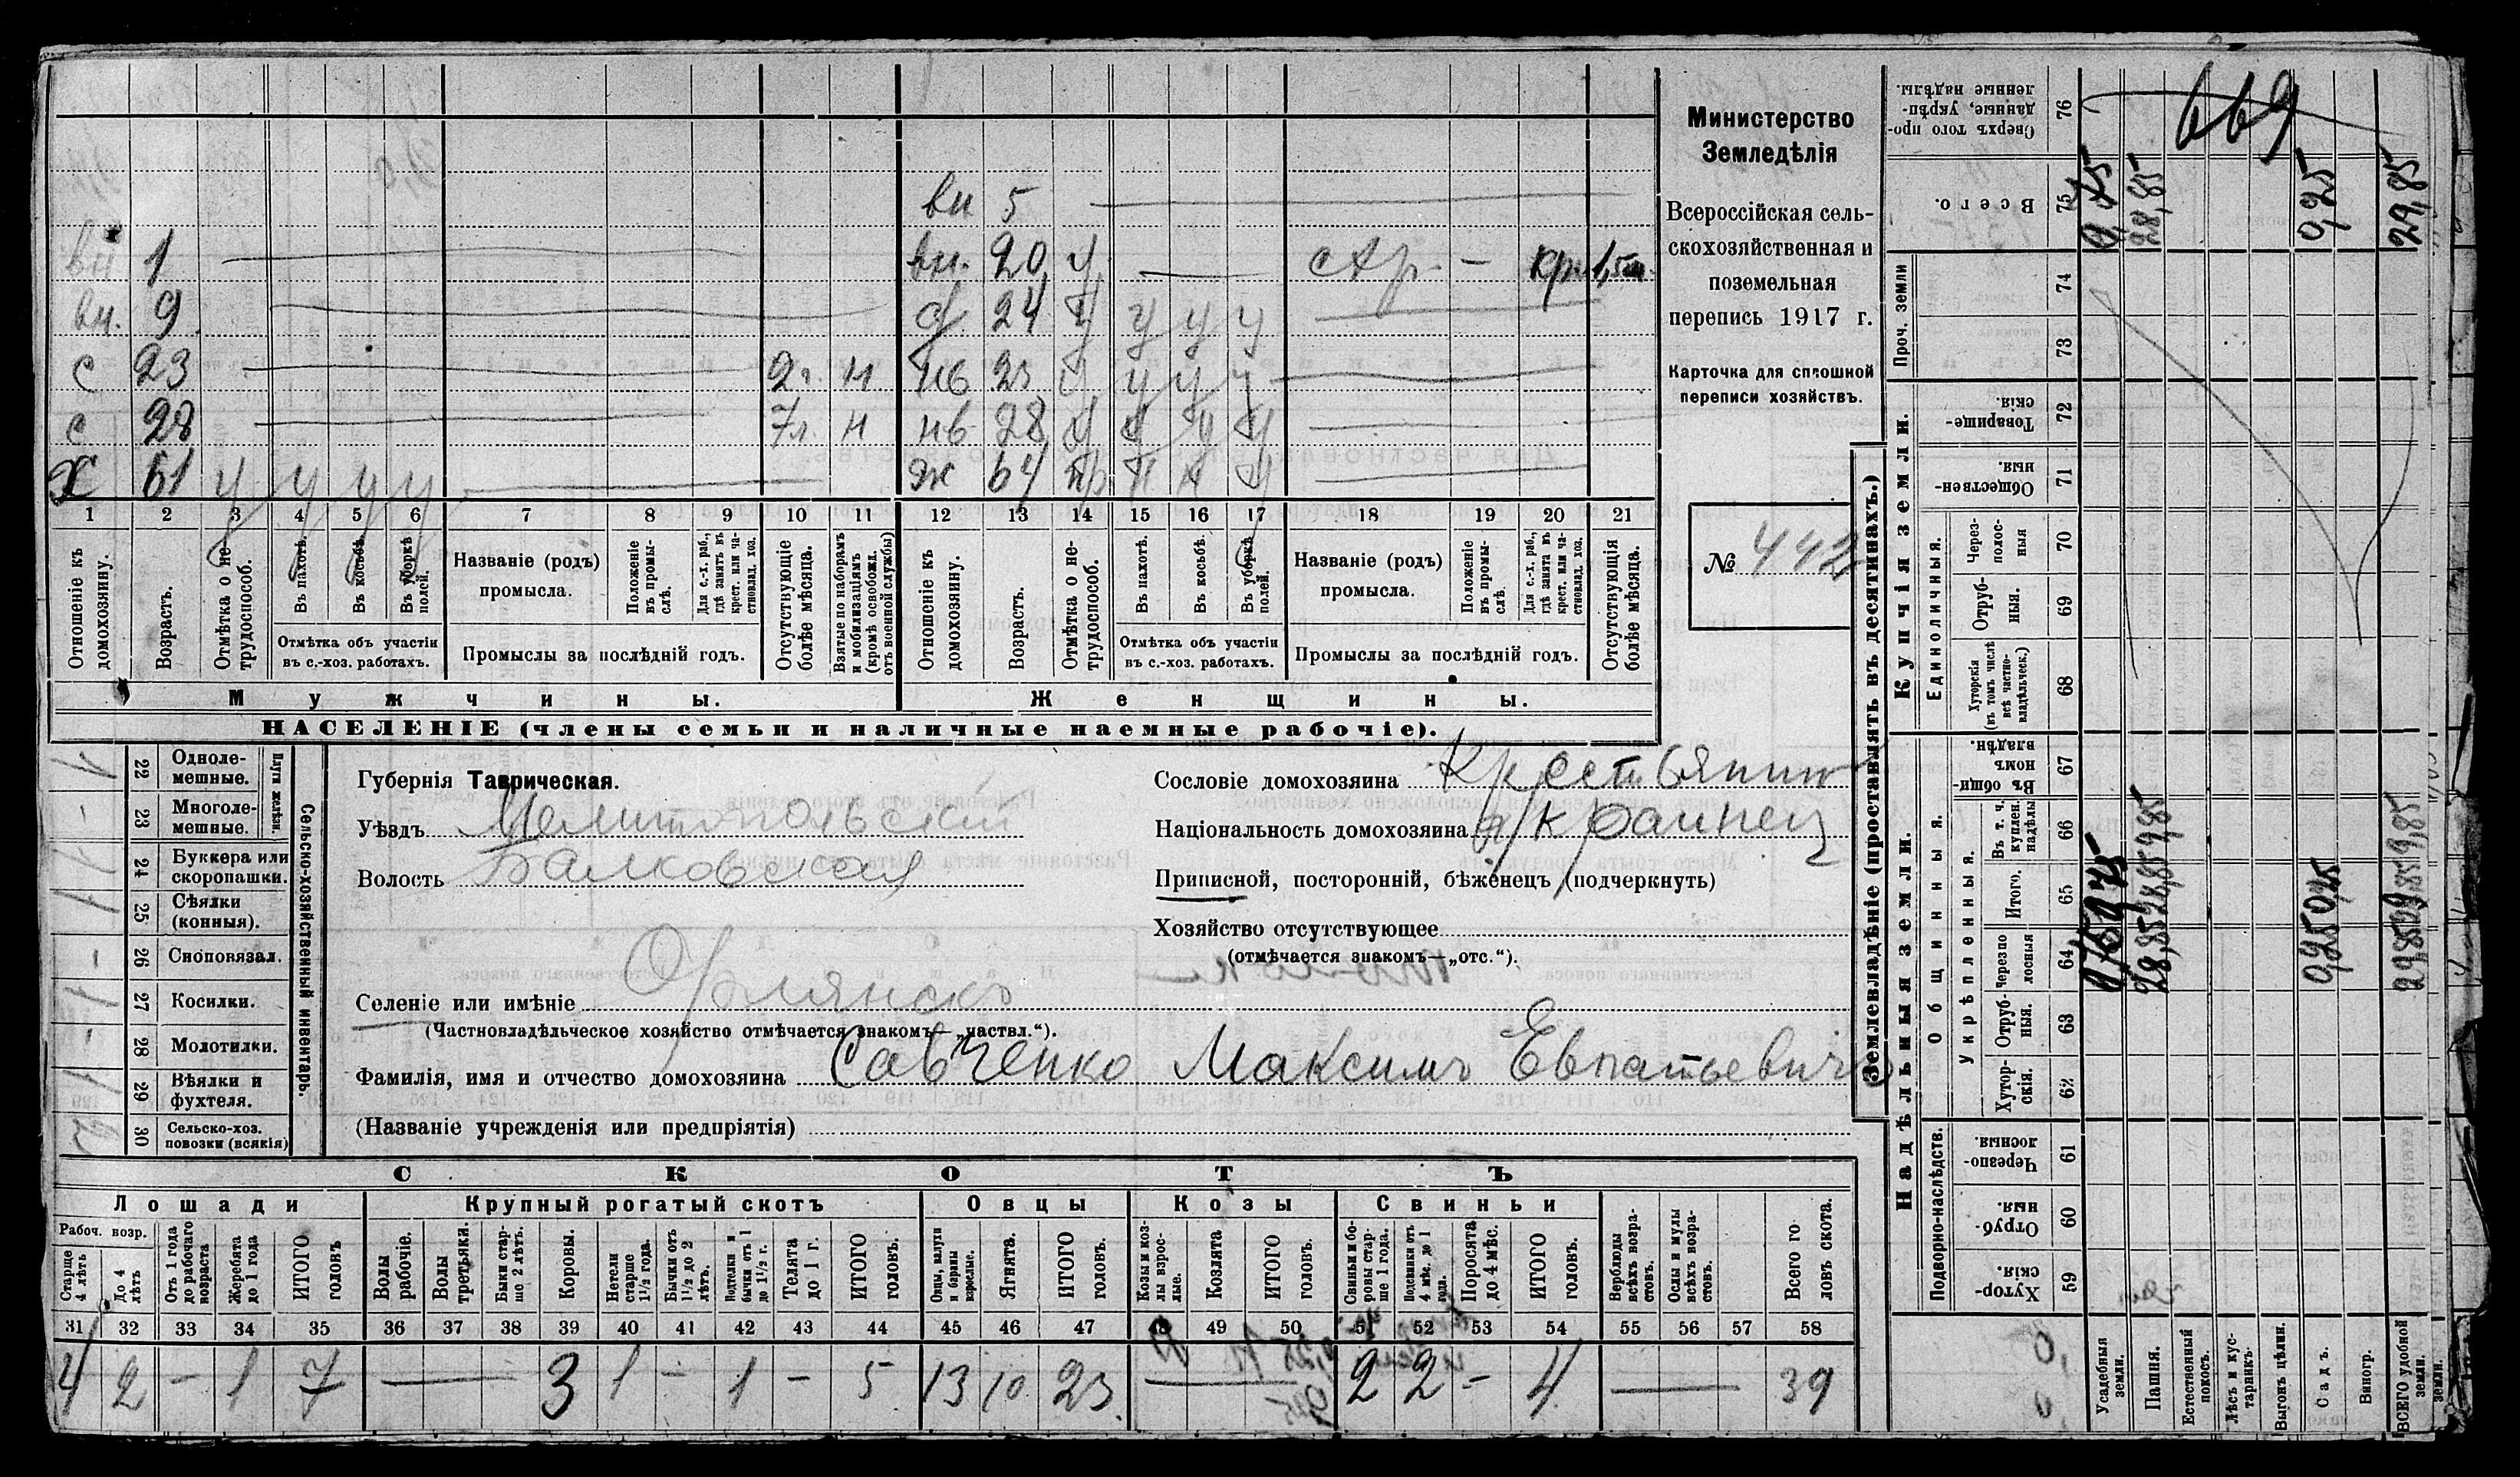 669
вн 5
вн 1 вн. 20 у стр. — кр. 1,5 м.
вн. 9 д 24 у у у у
с 23 2 г. н нв 23 у у у у
с 28 7 л. н нв 28 у у у у
х 61 у у у у ж 64 пр н н у
1 2 3 4 5 6 7 8 9 10 11 12 13 14 15 16 17 18 19 20 21
Отношеніе къ домохозяину.
Возрастъ.
Отмѣтка о нетрудоспособ.
Въ пахотѣ.
Въ косьбѣ.
Въ уборкѣ полей.
Отмѣтка объ участіи въ с.-хоз. работахъ.
Названіе (родъ) промысла.
Положеніе въ промыслѣ.
Для с.-х. раб., гдѣ занятъ въ крест. или частновлад. хоз.
Промыслы за послѣдній годъ.
Отсутствующіе болѣе мѣсяца.
Взятые по наборамъ и мобилизаціямъ (кромѣ освобожд. отъ военной службы)
Отношеніе къ домохозяину.
Возрастъ.
Отмѣтка о нетрудоспособ.
Въ пахотѣ.
Въ косьбѣ.
Въ уборкѣ полей.
Отмѣтка объ участіи въ с.-хоз. работахъ.
Названіе (родъ) промысла.
Положеніе въ промыслѣ.
Для с.-х. раб., гдѣ занята въ крест. или частновлад. хоз.
Промыслы за послѣдній годъ.
Отсутствующія болѣе мѣсяца.
Мужчины. Женщины.
НАСЕЛЕНІЕ (члены семьи и наличные наемные рабочіе).
Министерство
Земледѣлія
Всероссійская сель-
скохозяйственная и
поземельная
перепись 1917 г.
Карточка для сплошной
переписи хозяйствъ.
№ 442
Сельско-хозяйственный инвентарь.
Плуги желѣзн.
22 Однолемешные. 1
23 Многолемешные. -
24 Буккера или скоропашки. 1
25 Сѣялки (конныя). 1
26 Сноповязал. -
27 Косилки. 1
28 Молотилки. -
29 Вѣялки и фухтеля. 1
30 Сельско-хоз. повозки (всякія)
Губернія Таврическая.
Уѣздъ Мелитопольскій
Волость Балковская
Сословіе домохозяина Крестьянин
Національность домохозяина украинец
Приписной, посторонній, бѣженецъ (подчеркнуть)
Хозяйство отсутствующее
(отмѣчается знакомъ—„отс.“).
Селеніе или имѣніе Орлянскъ
(Частновладѣльческое хозяйство отмѣчается знакомъ—„частвл.“).
Фамилія, имя и отчество домохозяина Савченко Максимъ Евпатьевичъ
(Названіе учрежденія или предпріятія)
СКОТЪ
Лошади Крупный рогатый скотъ Овцы Козы Свиньи
Рабоч. возр.
Старше 4 лѣтъ
До 4 лѣтъ
Отъ 1 года до рабочаго возраста
Жеребята до 1 года
ИТОГО головъ
Волы рабочіе.
Волы третьяки.
Быки старше 2 лѣтъ.
Коровы.
Нетели старше 1½ года.
Бычки отъ 1½ до 2 лѣтъ.
бычки отъ 1 до 1½ г.
Телята до 1 г.
ИТОГО головъ.
Овцы, валухи и бараны взрослые.
Ягнята.
ИТОГО головъ.
Козы козлы взрослые.
Козлята
ИТОГО головъ.
Свиньи и боровы старше 1 года.
Подсвинки отъ 4 мѣс. до 1 года.
Поросята до 4 мѣс.
ИТОГО головъ.
Верблюды всѣхъ возрастовъ.
Ослы и мулы всѣхъ возрастовъ.
Всего головъ скота.
31 32 33 34 35 36 37 38 39 40 41 42 43 44 45 46 47 48 49 50 51 52 53 54 55 56 57 58
4 2 - 1 7 — 3 1 - 1 - 5 13 10 23 — 2 2 - 4 — 39
Землевладѣніе (проставлять въ десятинахъ.)
Надѣльныя земли. Купчія земли. Проч. земли
Подворно-наслѣдств. Общинныя. Укрѣпленныя. Единоличныя.
Сверхъ того проданные, укрѣпленные надѣлы. 76
Всего. 75 0,75 28,85 0,25 29,85
74
73
Товарищескія. 72
Общественныя. 71
Черезполосныя 70
Отрубныя. 69
Хуторскія (въ томъ числѣ всѣ частновладѣльческ.) 68
Въ общинномъ владѣн. 67
Въ т. ч. куплен. надѣлы 66
Итого. 65 0,75 28,85 0,25 29,85
Черезполосныя 64 0,75 28,85 0,25 29,85
Отрубныя. 63
Хуторскія. 62
Черезполосныя. 61
Отрубныя. 60
Хуторскія. 59
Усадебныя земли.
Пашня.
Естественный покосъ.
Лѣсъ и кустарникъ.
Выгонъ цѣлин.
Садъ.
Виногр.
ВСЕГО удобной земли.